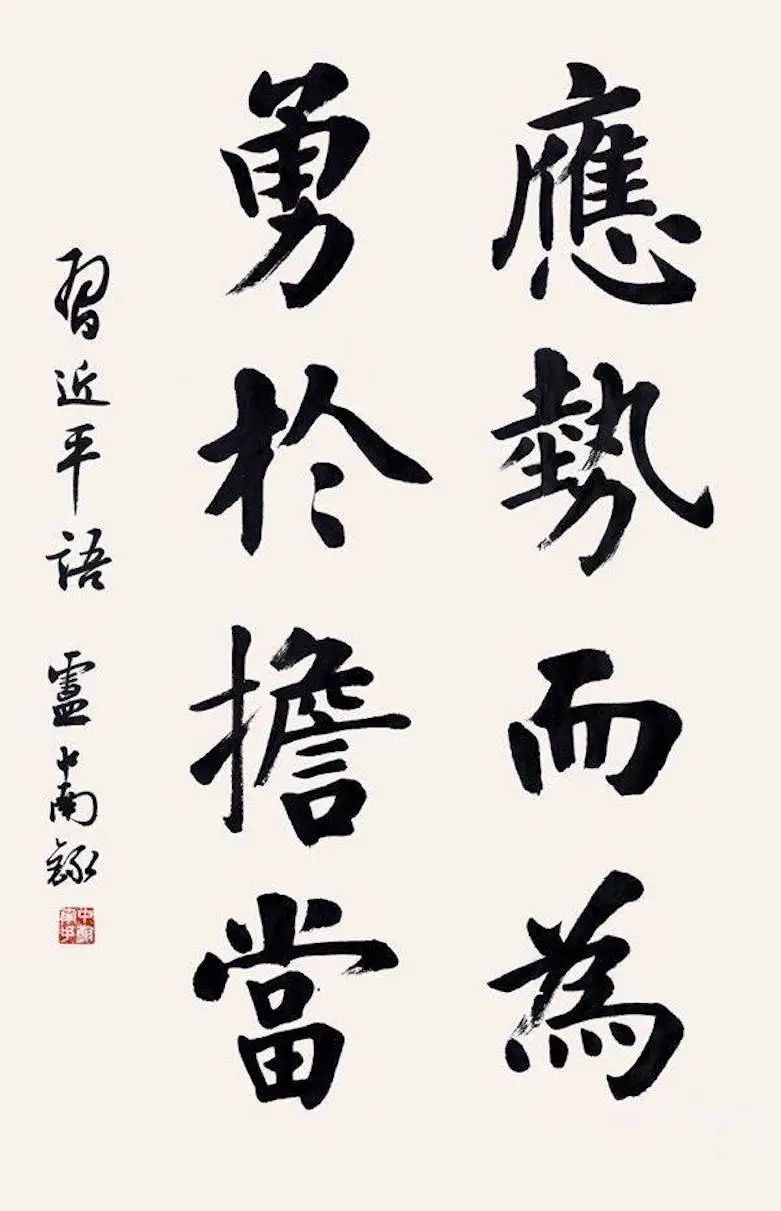 應勢而為
勇於擔當
習近平語 盧中南錄